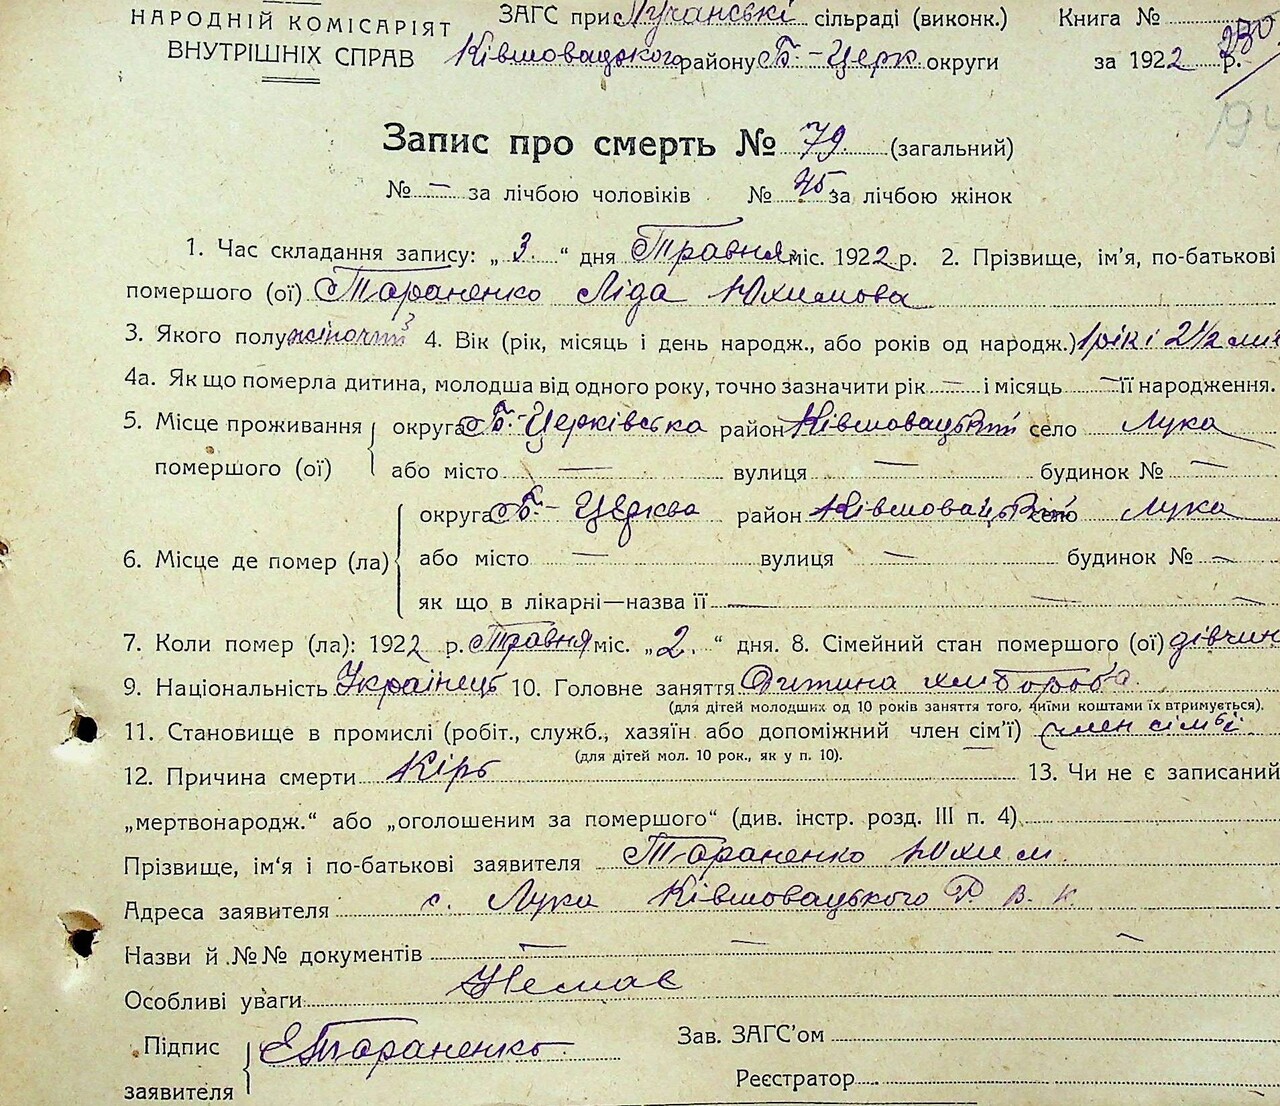 НАРОДНІЙ КОМІСАРІЯТ
ВНУТРІШНІХ СПРАВ
ЗАГС при Лучанські сільраді (виконк.)
Ківшовацького району Б-Церк. округи
Книга №
за 1922 р.
230
Запис про смерть № 79 (загальний)
№ — за лічбою чоловіків № 45 за лічбою жінок
1. Час складання запису: „ 3. “ дня Травня міс. 1922 р. 2. Прізвище, ім'я, по-батькові
помершого (ої) Тараненко Ліда Юхимова
3. Якого полу жіночої 4. Вік (рік, місяць і день народж., або років од народж.) 1 рік і 2 1/2 міс
4а. Як що померла дитина, молодша від одного року, точно зазначити рік — і місяць — її народження.
5. Місце проживання помершого (ої) округа Б.-Церківська район Ківшовацький село Лука
або місто — вулиця — будинок № —
6. Місце де помер (ла) округа Б.- Церква район Ківшовацький село Лука
або місто — вулиця — будинок № —
як що в лікарні—назва її — — —
7. Коли помер (ла): 1922 р. Травня міс. „ 2. “ дня. 8. Сімейний стан помершого (ої) дівчин
9. Національність Українець 10. Головне заняття Дитина хлібороба
(для дітей молодших од 10 років заняття того, чиїми коштами їх втримується).
11. Становище в промислі (робіт., служб., хазяїн або допоміжний член сім'ї) член сімьї
(для дітей мол. 10 рок., як у п. 10).
12. Причина смерти Кірь — 13. Чи не є записаний
„мертвонародж.“ або „оголошеним за помершого“ (див. інстр. розд. III п. 4)
Прізвище, ім'я і по-батькові заявителя Тараненко Юхим
Адреса заявителя с. Лука Ківшовацького Р. В. К.
Назви й №№ документів — — —
Особливі уваги Немає
Підпис заявителя Е Тараненко
Зав. ЗАГС'ом
Реєстратор